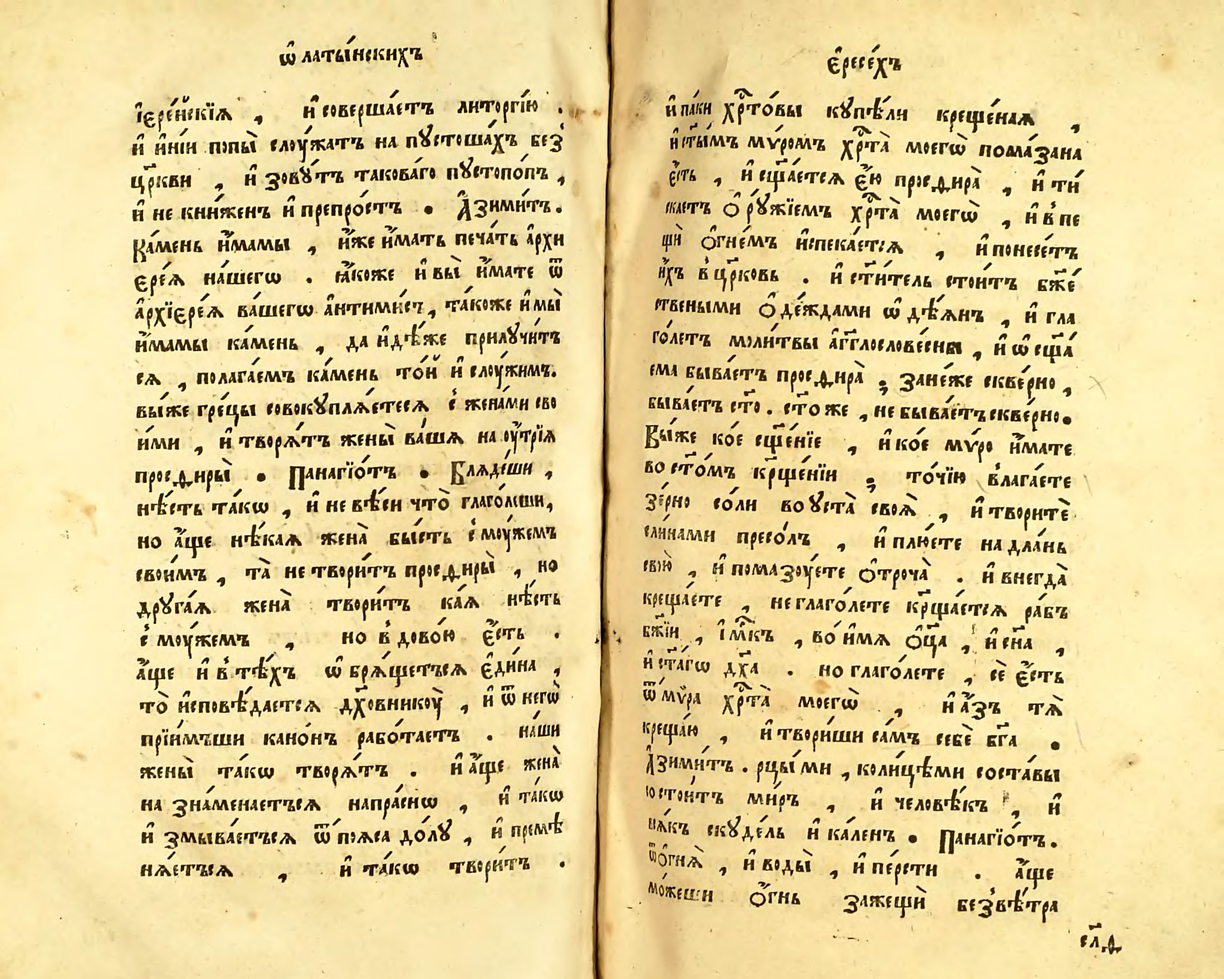 ѡ҆ латы́нскихъ
і҆ере́йскїѧ , и҆ соверша́етъ литоргі́ю .
и҆ и҆ні́и попы̀ слоу́жатъ на пꙋстоша́хъ без̾
цр҃кви , и҆ зовꙋ́тъ такова́го пꙋстопо́пъ ,
и҆ не кни́женъ и҆ препро́стъ . А҆зими́тъ .
Ка́мень и҆́мамы , и҆́же и҆́мать печа́ть а҆рхи
ере́ѧ на́шегѡ . ꙗ҆́коже и҆ вы̀ и҆́мате ѿ
а҆рхїере́ѧ ва́шегѡ а҆нтими́съ , та́коже и҆ мы̀
и҆́мамы ка́мень , да и҆дѣ́же прилꙋчи́тъ
сѧ , полага́емъ ка́мень то́й и҆ слоу́жимъ .
вы́же гре́цы совокꙋплѧ́етесѧ с̾ жена́ми сво
и́ми , и҆ творѧ́тъ жены̀ ва́шѧ на оу҆́трїѧ
просѳиры̀ . Панагїо́тъ . Блѧде́ши ,
нѣ́сть та́кѡ , и҆ не вѣ́си что̀ глаго́лши ,
но а҆́ще нѣ́каѧ жена̀ бы́сть с̾ моу́жемъ
свои́мъ , та̀ не твори́тъ просѳиры̀ , но
дрꙋга́ѧ жена̀ твори́тъ ка́ѧ нѣ́сть
с̾ моу́жемъ , но в̾дово́ю є҆́сть .
а҆́ще и҆ в̾ тѣ́хъ ѡ҆брѧ́щетъсѧ є҆ди́на ,
то̀ и҆сповѣ́даетсѧ дх҃овникоу̀ , и҆ ѿ негѡ̀
прїи́мъши кано́нъ рабо́таетъ . на́ши
жены̀ та́кѡ творѧ́тъ . и҆ а҆́ще жена̀
на зна́менаетъсѧ напра́снѡ , и҆ та́кѡ
и҆ змыва́етъсѧ ѿ по́ѧса до́лꙋ , и҆ премѣ
нѧ́етъсѧ , и҆ та́кѡ твори́тъ .
є҆ресе́хъ
и҆ па́ки хрт҇о́вы кꙋпѣ́ли креще́наѧ ,
и҆ ст҃ы́мъ мѵ́ромъ хрт҇а̀ моегѡ̀ пома́зана
є҆́сть , и҆ сщ҃а́етсѧ є҆́ю просѳира̀ , и҆ ти́
скаетъ ѻ҆рꙋ́жїемъ хрт҇а̀ моегѡ̀ , и҆ в̾ пе
щѝ ѻ҆гне́мъ и҆спека́етсѧ , и҆ понесе́тъ
и҆́хъ в̾ цр҃ковь . и҆ ст҃и́тель стои́тъ бж҃е́
ствеными ѻ҆де́ждами ѡ҆дѣ́ѧнъ , и҆ гла
го́летъ моли́твы а҆́гг҃лослове́сны , и҆ ѡ҆сщ҃а́
ема быва́етъ просѳира̀ ; зане́же скве́рно ,
быва́етъ ст҃о . ст҃о же , не быва́етъ скве́рно .
Вы́же ко́е сщ҃е́нїе , и҆ ко́е мѵ́ро и҆́мате
во ст҃о́мъ кр҃ще́нїи ; то́чїю влага́ете
зе́рно со́ли во ꙋста̀ своѧ̀ , и҆ творитѐ
сли́нами пресо́лъ , и҆ плю́ете на дла́нь
свою̀ , и҆ помазоу́ете ѻ҆троча̀ . и҆ внегда̀
креща́ете , не глаго́лете кр҃ща́етсѧ ра́бъ
бж҃їи , і҆мк҃ъ , во и҆́мѧ ѻ҆ц҃а̀ , и҆ сн҃а ,
и҆ ст҃а́гѡ дх҃а . но глаго́лете , сѐ є҆́сть
ѿ мѵ́ра хрт҇а̀ моегѡ̀ , и҆ а҆́зъ тѧ̀
креща́ю , и҆ твори́ши са́мъ себѐ бг҃а .
А҆зими́тъ . рцы́ ми , коли́цѣми соста́вы
стои́тъ ми́ръ , и҆ человѣ́къ , и҆
па́къ скꙋде́ль и҆ ка́ленъ . Панагїо́тъ .
ѿ ѻ҆гнѧ̀ , и҆ воды̀ , и҆ пе́рсти . а҆́ще
мо́жеши ѻ҆́гнь зажещѝ без̾ вѣ́тра
сл҃ѳ